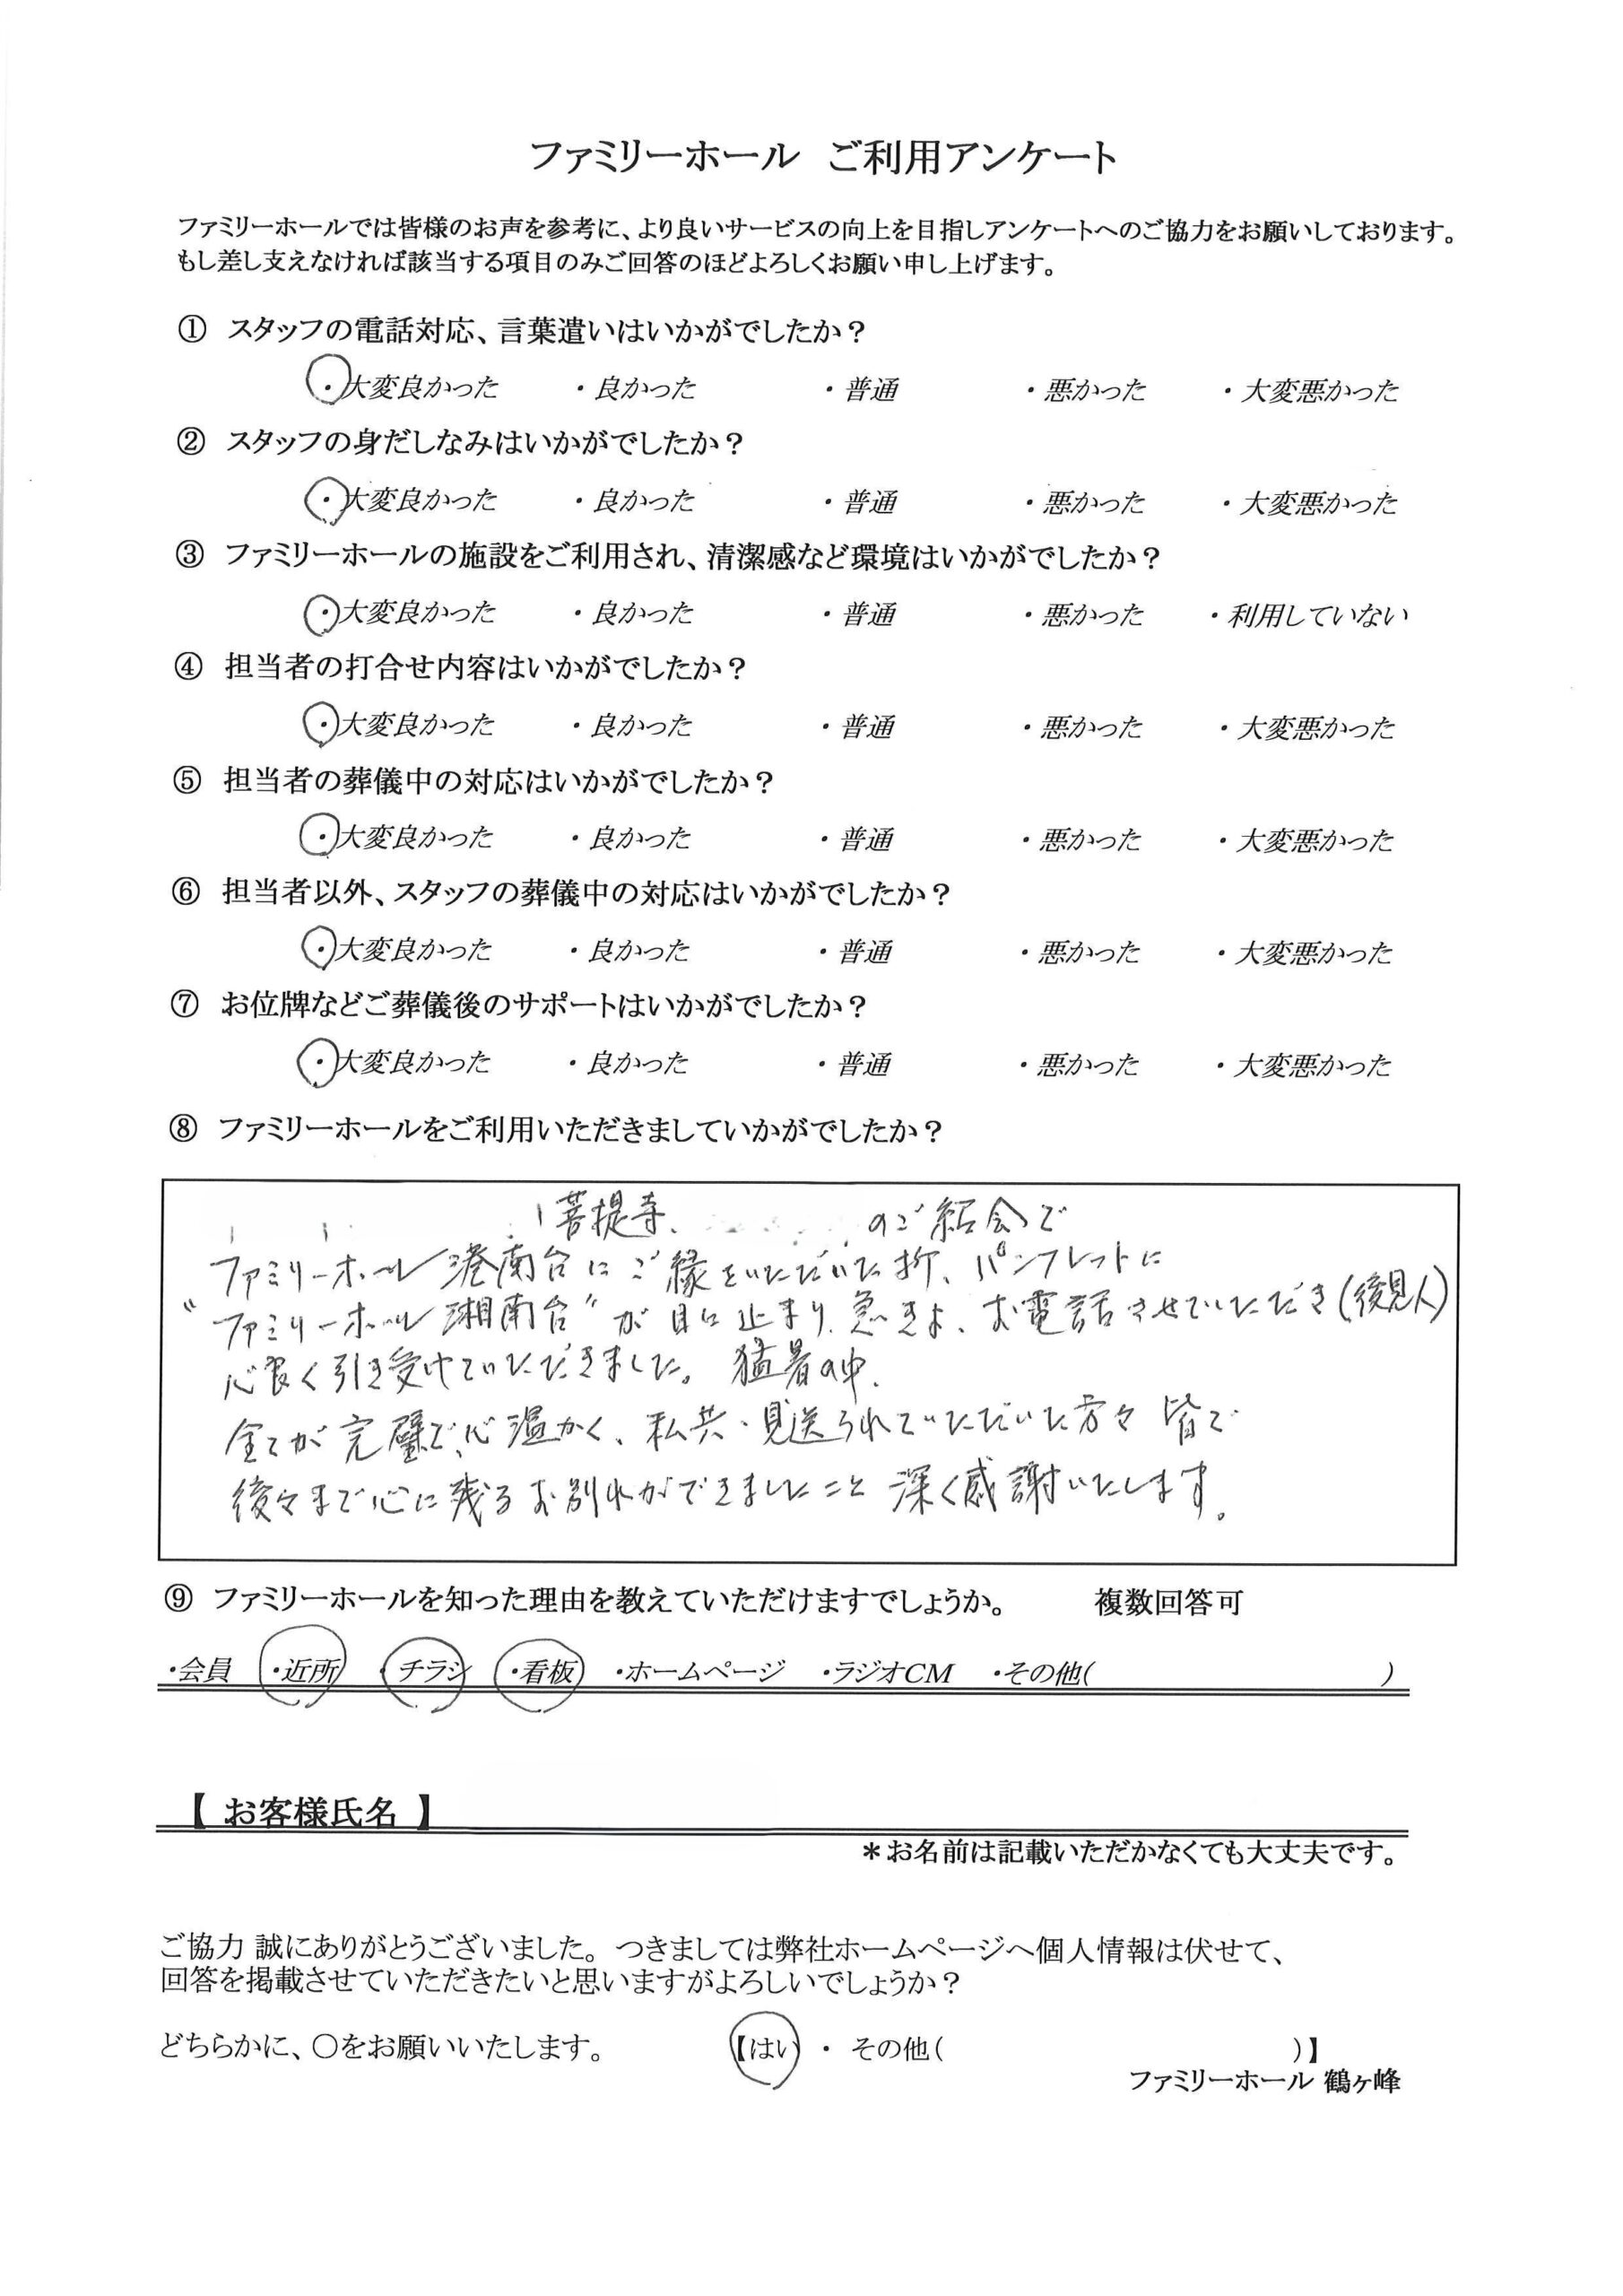 ファミリーホール　ご利用アンケート
ファミリーホールでは皆様のお声を参考に、より良いサービスの向上を目指しアンケートへのご協力をお願いしております。
もし差し支えなければ該当する項目のみご回答のほどよろしくお願い申し上げます。
① スタッフの電話対応、言葉遣いはいかがでしたか？
・大変良かった ・良かった ・普通 ・悪かった ・大変悪かった
② スタッフの身だしなみはいかがでしたか？
・大変良かった ・良かった ・普通 ・悪かった ・大変悪かった
③ ファミリーホールの施設をご利用され、清潔感など環境はいかがでしたか？
・大変良かった ・良かった ・普通 ・悪かった ・利用していない
④ 担当者の打合せ内容はいかがでしたか？
・大変良かった ・良かった ・普通 ・悪かった ・大変悪かった
⑤ 担当者の葬儀中の対応はいかがでしたか？
・大変良かった ・良かった ・普通 ・悪かった ・大変悪かった
⑥ 担当者以外、スタッフの葬儀中の対応はいかがでしたか？
・大変良かった ・良かった ・普通 ・悪かった ・大変悪かった
⑦ お位牌などご葬儀後のサポートはいかがでしたか？
・大変良かった ・良かった ・普通 ・悪かった ・大変悪かった
⑧ ファミリーホールをご利用いただきましていかがでしたか？
菩提寺、 のご紹介で
ファミリーホール港南台にご縁をいただいた折、パンフレットに
“ファミリーホール湘南台”が目に止まり、急きょ、お電話させていただき(後見人)
心良く引き受けていただきました。猛暑の中、
全てが完璧で、心温かく、私共・見送られていただいた方々皆で
後々まで心に残るお別れができましたこと深く感謝いたします。
⑨ ファミリーホールを知った理由を教えていただけますでしょうか。 複数回答可
・会員 ・近所 ・チラシ ・看板 ・ホームページ ・ラジオCM ・その他( )
【 お客様氏名 】
＊お名前は記載いただかなくても大丈夫です。
ご協力 誠にありがとうございました。つきましては弊社ホームページへ個人情報は伏せて、
回答を掲載させていただきたいと思いますがよろしいでしょうか？
どちらかに、〇をお願いいたします。 【はい ・ その他( )】
ファミリーホール 鶴ヶ峰